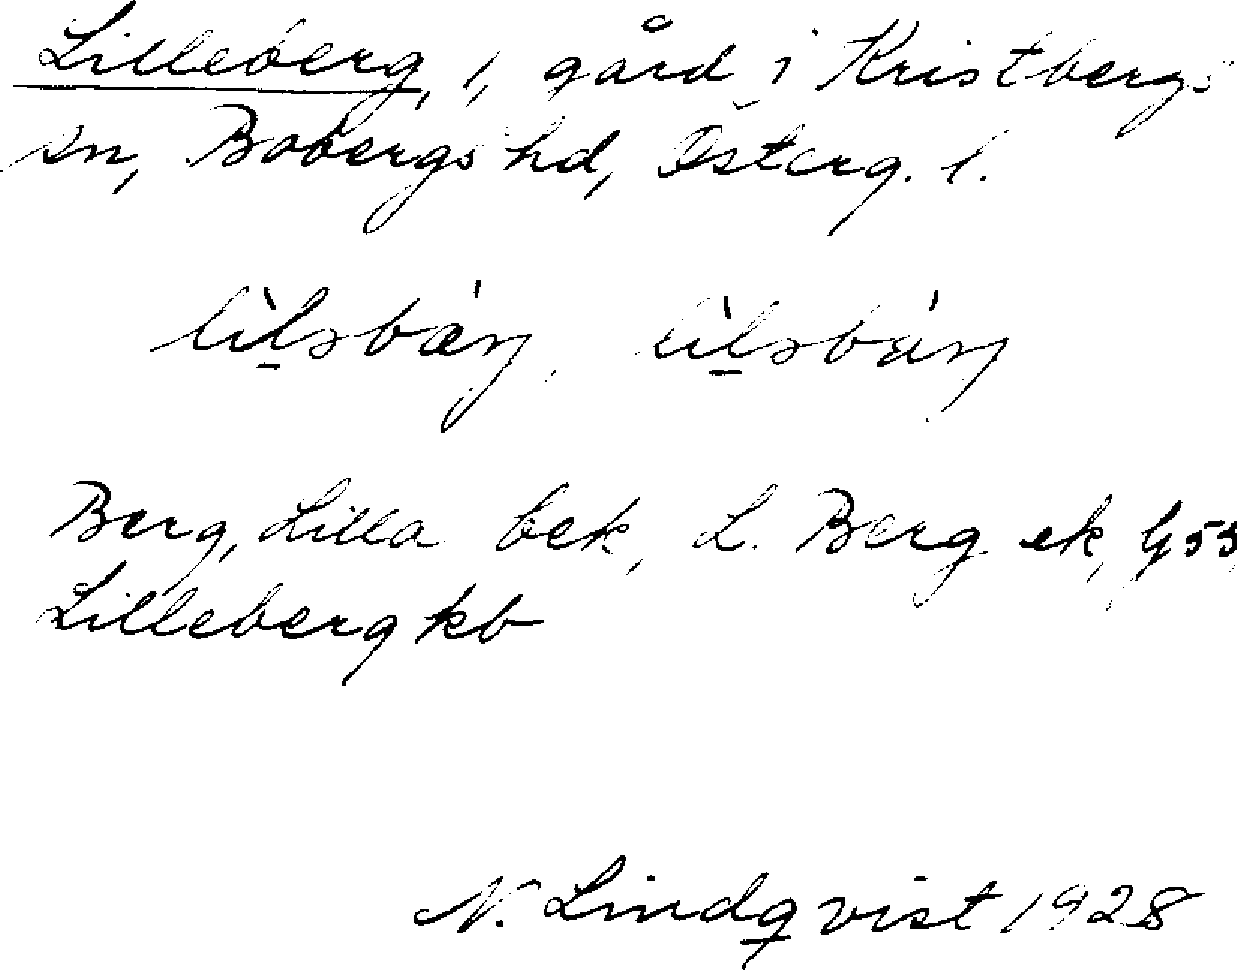 Lilleberg, 1, gård i Kristbergs
sn, Bobergs hd, Österg. l.
Berg, Lilla bek, L. Berg ek, G 55,
Lilleberg kb
N. Lindqvist 1928